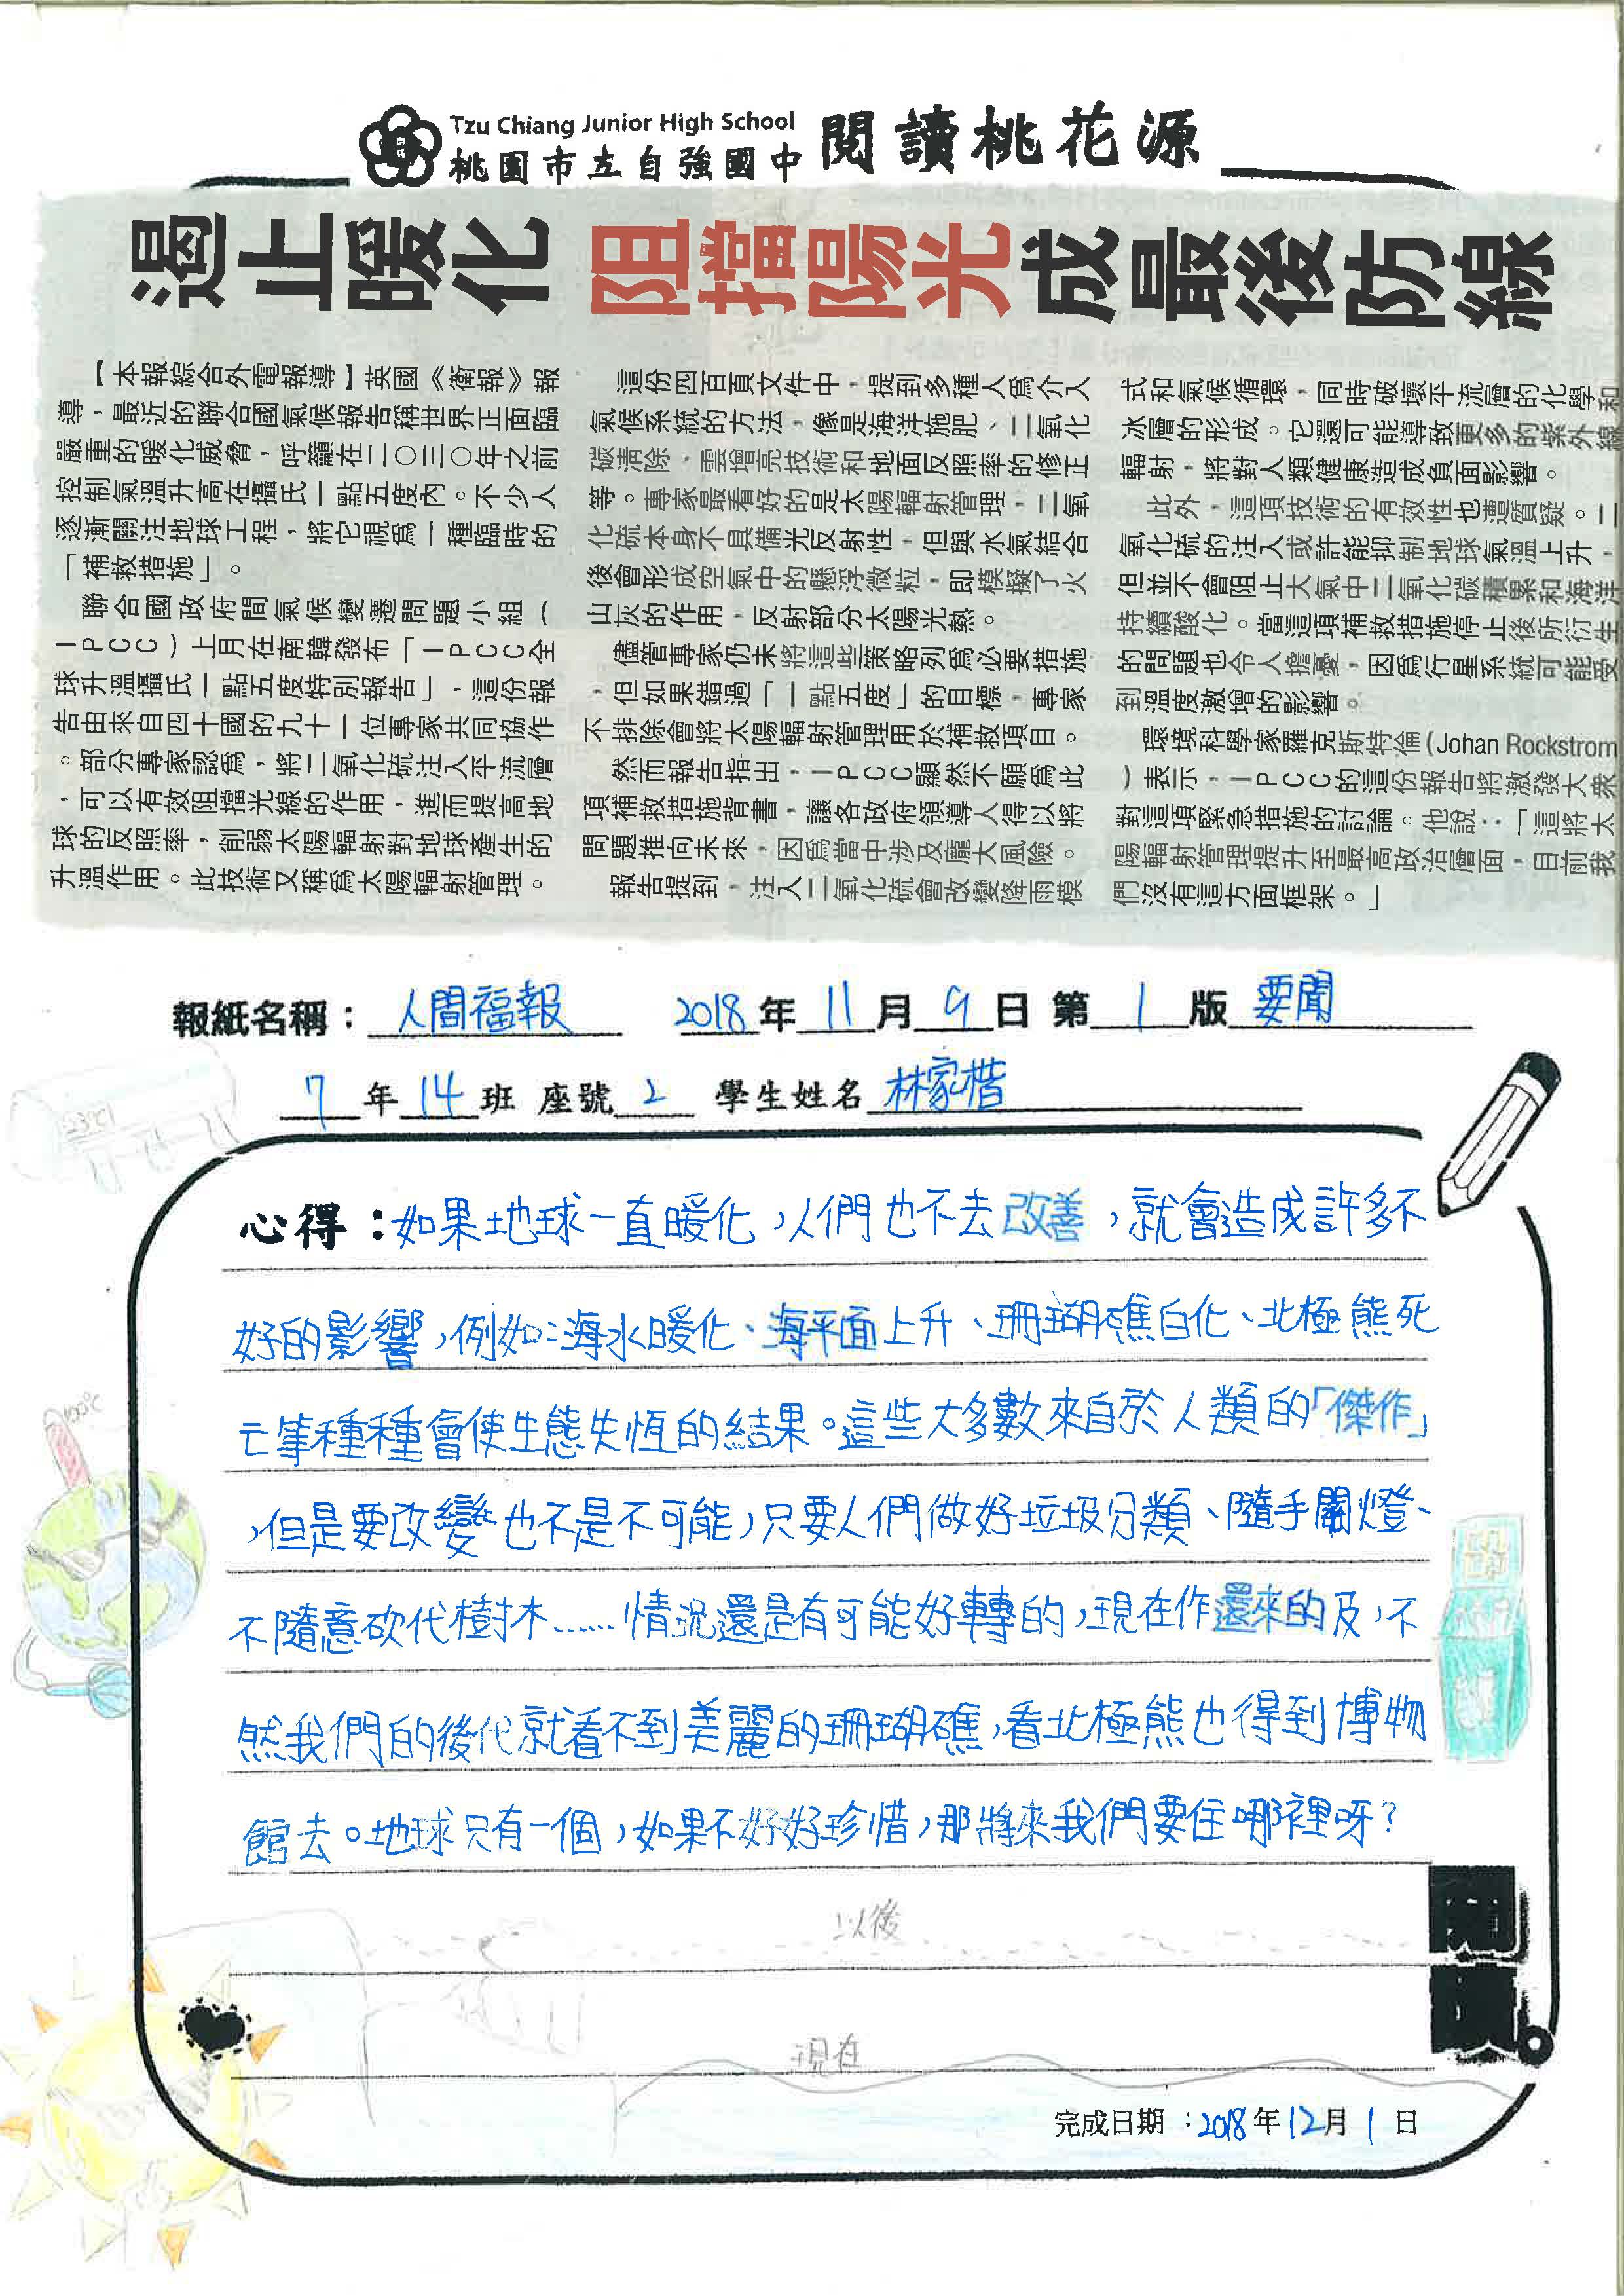 Tzu Chiang Junior High School
桃園市立自強國中 閱讀桃花源
遏止暖化 阻擋陽光成最後防線
【本報綜合外電報導】英國《衛報》報
導，最近的聯合國氣候報告稱世界正面臨
嚴重的暖化威脅，呼籲在二〇三〇年之前
控制氣溫升高在攝氏一點五度內。不少人
逐漸關注地球工程，將它視為一種臨時的
「補救措施」。
聯合國政府間氣候變遷問題小組（
IPCC）上月在南韓發布「IPCC全
球升溫攝氏一點五度特別報告」，這份報
告由來自四十國的九十一位專家共同協作
。部分專家認為，將二氧化硫注入平流層
，可以有效阻擋光線的作用，進而提高地
球的反照率，削弱太陽輻射對地球產生的
升溫作用。此技術又稱為太陽輻射管理。
這份四百頁文件中，提到多種人為介入
氣候系統的方法，像是海洋施肥、二氧化
碳清除、雲增亮技術和地面反照率的修正
等。專家最看好的是太陽輻射管理，二氧
化硫本身不具備光反射性，但與水氣結合
後會形成空氣中的懸浮微粒，即模擬了火
山灰的作用，反射部分太陽光熱。
儘管專家仍未將這些策略列為必要措施
，但如果錯過「一點五度」的目標，專家
不排除會將太陽輻射管理用於補救項目。
然而報告指出，IPCC顯然不願為此
項補救措施背書，讓各政府領導人得以將
問題推向未來，因為當中涉及龐大風險。
報告提到，注入二氧化硫會改變降雨模
式和氣候循環，同時破壞平流層的化學和
冰層的形成。它還可能導致更多的紫外線
輻射，將對人類健康造成負面影響。
此外，這項技術的有效性也遭質疑。二
氧化硫的注入或許能抑制地球氣溫上升，
但並不會阻止大氣中二氧化碳積累和海洋
持續酸化。當這項補救措施停止後所衍生
的問題也令人擔憂，因為行星系統可能受
到溫度激增的影響。
環境科學家羅克斯特倫(Johan Rockstrom
）表示，IPCC的這份報告將激發大眾
對這項緊急措施的討論。他說：「這將太
陽輻射管理提升至最高政治層面，目前我
們沒有這方面框架。」
報紙名稱：人間福報 2018年11月9日 第1版 要聞
7年14班 座號2 學生姓名 林家楷
23℃
心得：如果地球一直暖化，人們也不去改善，就會造成許多不
好的影響，例如：海水暖化、海平面上升、珊瑚礁白化、北極熊死
亡等種種會使生態失恆的結果。這些大多數來自於人類的「傑作」
，但是要改變也不是不可能，只要人們做好垃圾分類、隨手關燈、
不隨意砍代樹木……情況還是有可能好轉的，現在作還來的及，不
然我們的後代就看不到美麗的珊瑚礁，看北極熊也得到博物
館去。地球只有一個，如果不好好珍惜，那將來我們要住哪裡呀？
100℃
以後
現在
完成日期：2018年12月1日